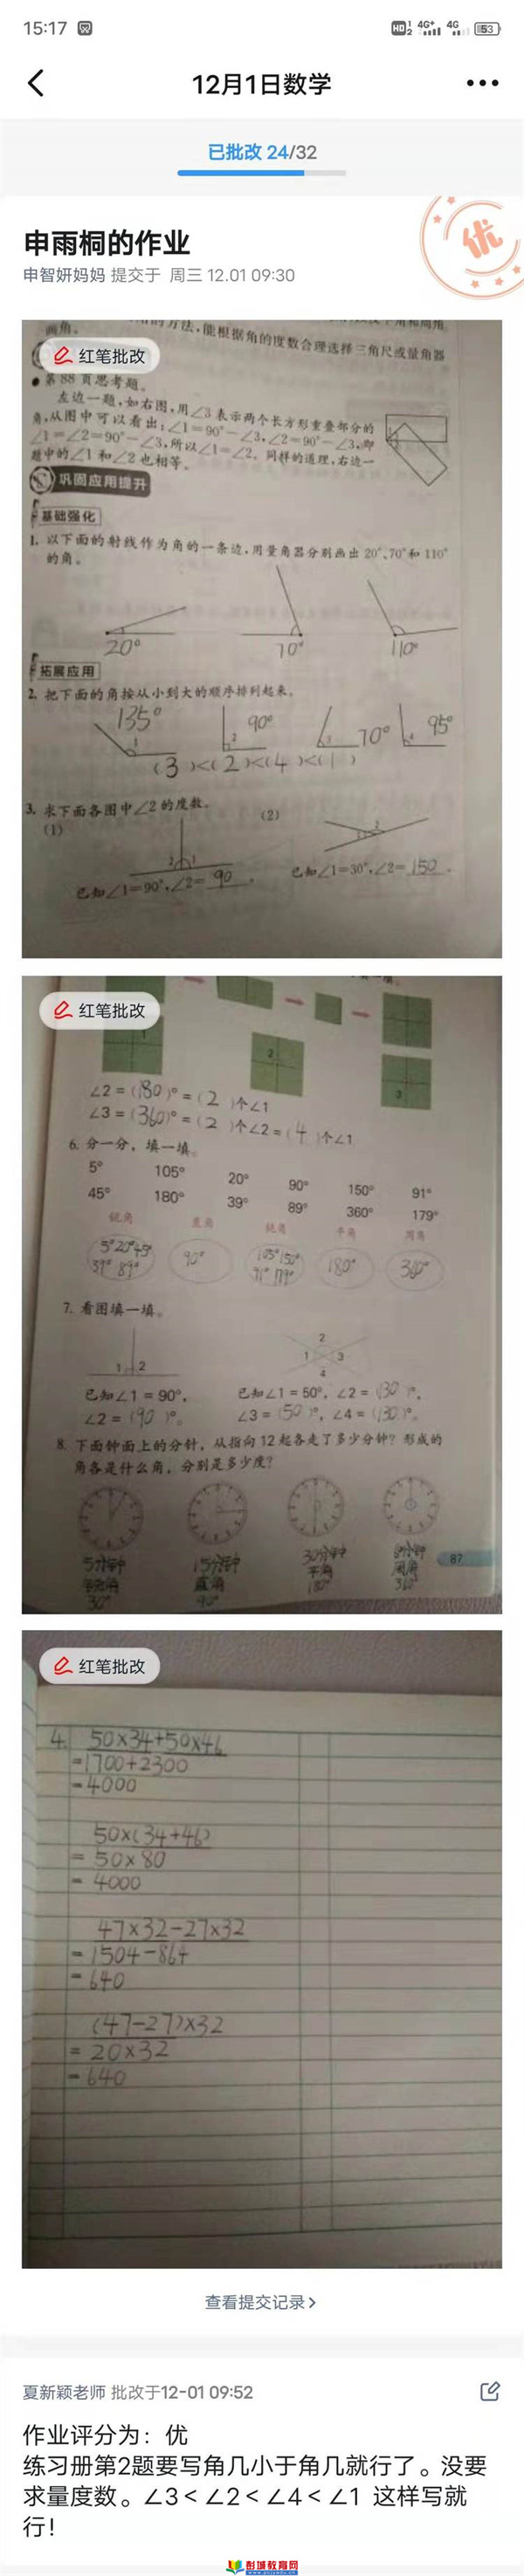 15:17
12月1日数学
已批改 24/32
优
申雨桐的作业
申智妍妈妈 提交于 周三 12.01 09:30
方法,能根据角的度数合理选择三角尺或量角器
画角。
红笔批改
●第88页思考题。
左边一题,如右图,用∠3表示两个长方形重叠部分的
角,从图中可以看出:∠1=90°-∠3,∠2=90°-∠3,即
∠1=∠2=90°-∠3,所以∠1=∠2。同样的道理,右边一
题中的∠1和∠2也相等。
巩固应用提升
基础强化
1. 以下面的射线作为角的一条边,用量角器分别画出20°、70°和110°
的角。
20° 70° 110°
拓展应用
2. 把下面的角按从小到大的顺序排列起来。
135° 90° 70° 95°
(3)<(2)<(4)<(1)
3. 求下面各图中∠2的度数。
(1) (2)
已知∠1=90°,∠2=90。 已知∠1=30°,∠2=150。
红笔批改
∠2=(180)°=(2)个∠1
∠3=(360)°=(2)个∠2=(4)个∠1
6. 分一分,填一填。
5° 105° 20° 90° 150° 91°
45° 180° 39° 89° 360° 179°
锐角 直角 钝角 平角 周角
5°20°45° 90° 105°150° 180° 360°
39° 89° 91° 179°
7. 看图填一填。
1 2
2
1 3
4
已知∠1=90°, 已知∠1=50°,∠2=(130)°,
∠2=(90)°。 ∠3=(50)°,∠4=(130)°。
8. 下面钟面上的分针,从指向12起各走了多少分钟?形成的
角各是什么角,分别是多少度?
5分钟 15分钟 30分钟
锐角 直角 平角 周角
30° 90° 180° 360°
87
红笔批改
4. 50×34+50×46
=1700+2300
=4000
50×(34+46)
=50×80
=4000
47×32-27×32
=1504-864
=640
(47-27)×32
=20×32
=640
查看提交记录>
夏新颖老师 批改于12-01 09:52
作业评分为：优
练习册第2题要写角几小于角几就行了。没要
求量度数。∠3<∠2<∠4<∠1 这样写就
行!
彭城教育网